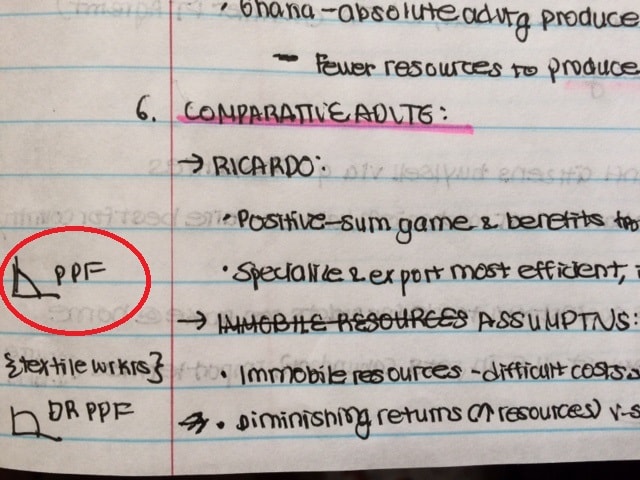 · Ghana-absolute advtg produce
- Fewer resources to produce
6. COMPARATIVE ADVTG:
→ RICARDO:
· Positive-sum game & benefits
PPF
· Specialize & export most efficient,
→ IMMOBILE RESOURCES ASSUMPTNS:
{textile wrkrs}
· Immobile resources - difficult costs
DR PPF
→ · Diminishing returns (↑ resources)